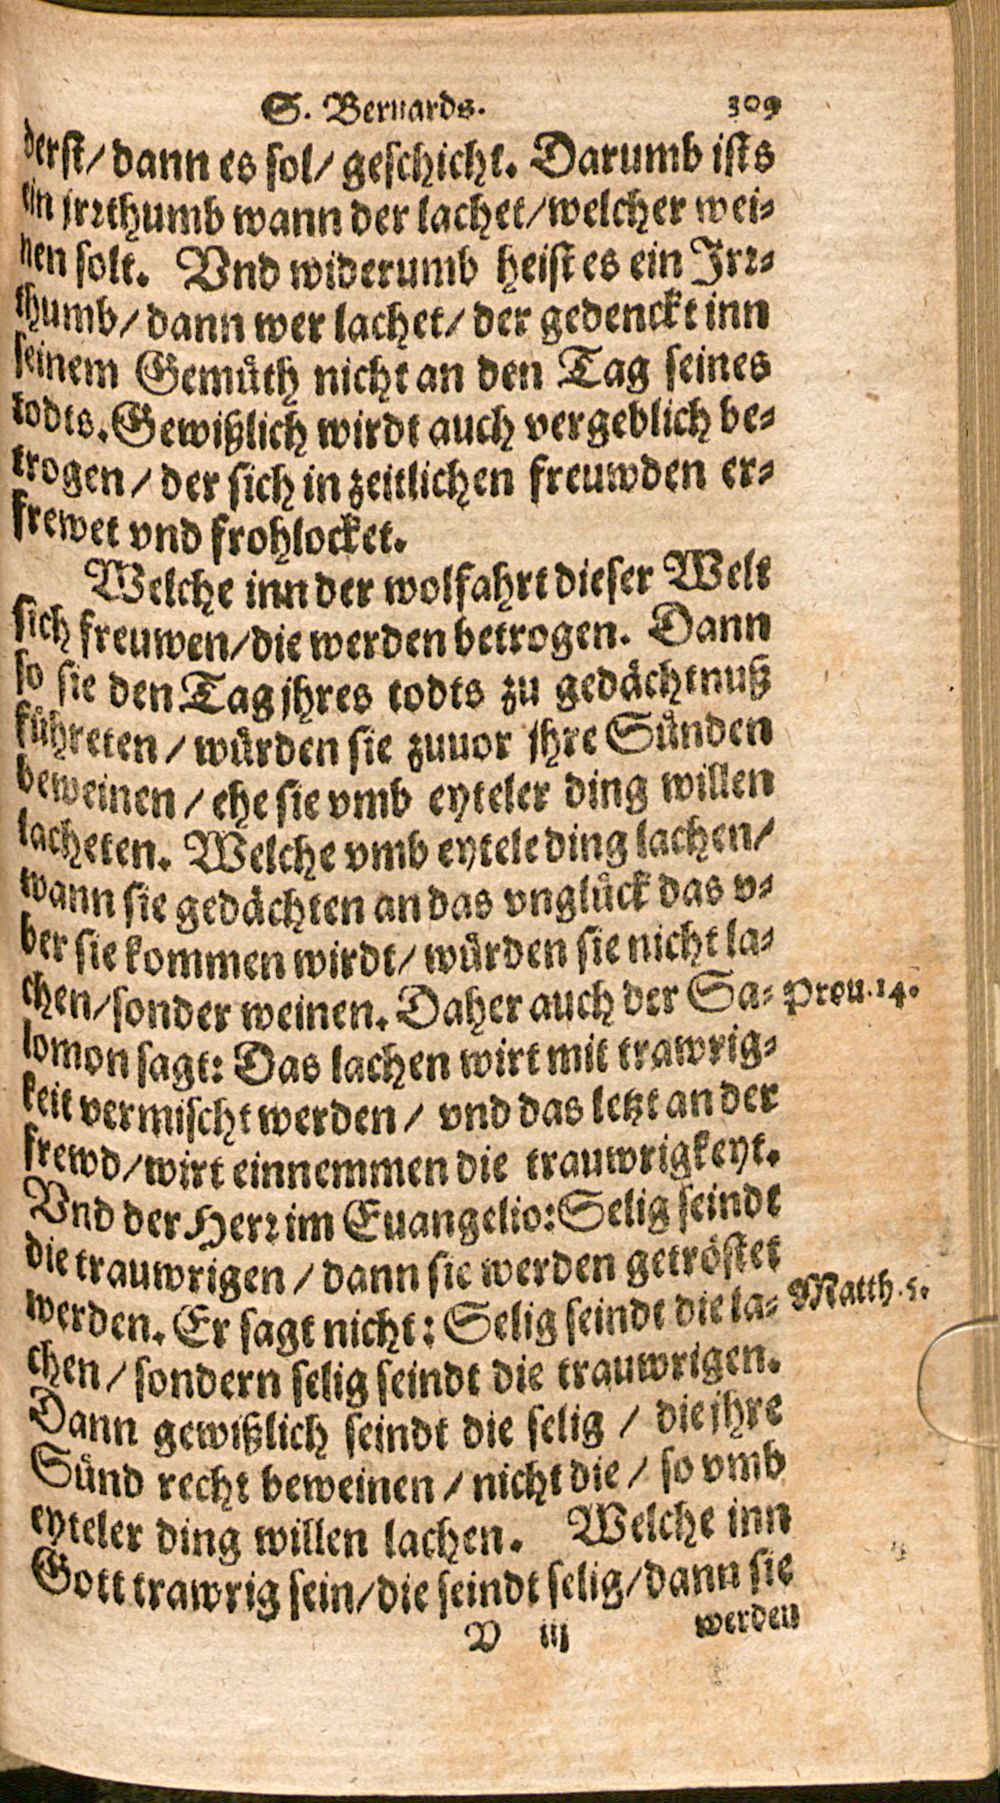 S. Bernards. 309
derst/ dann es sol/ geschicht. Darumb ists
ein jrrthumb wann der lachet/welcher wei-
nen solt. Vnd widerumb heist es ein Irr-
thumb/ dann wer lachet/ der gedenckt inn
seinem Gemüth nicht an den Tag seines
todts. Gewißlich wirdt auch vergeblich be-
trogen / der sich in zeitlichen freuwden er-
frewet vnd frohlocket.
Welche inn der wolfahrt dieser Welt
sich freuwen/die werden betrogen. Dann
so sie den Tag jhres todts zu gedächtnuß
führeten / würden sie zuuor jhre Sünden
beweinen / ehe sie vmb eyteler ding willen
lacheten. Welche vmb eytele ding lachen/
wann sie gedächten an das vnglück das v-
ber sie kommen wirdt/ würden sie nicht la-
chen/sonder weinen. Daher auch der Sa- Prou.14.
lomon sagt: Das lachen wirt mit trawrig-
keit vermischt werden / vnd das letzt an der
frewd/wirt einnemmen die trauwrigkeyt.
Vnd der Herr im Euangelio: Selig seindt
die trauwrigen / dann sie werden getröstet
werden. Er sagt nicht: Selig seindt die la- Matth.5.
chen / sondern selig seindt die trauwrigen.
Dann gewißlich seindt die selig / die jhre
Sünd recht beweinen / nicht die / so vmb
eyteler ding willen lachen. Welche inn
Gott trawrig sein/die seindt selig/dann sie
V iij werden